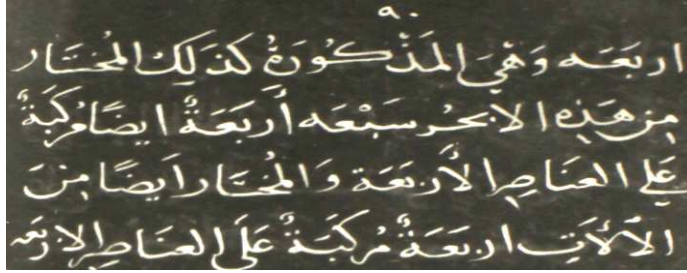 ٩٠
اربعه وَهْيَ المَذْكُورَةُ كذلِكَ المُختَار
مِن هَذِهِ الابحُر سَبْعَه أَربَعَةٌ ايضًا مُركَبَةٌ
عَلى العَنَاصِرِ الأربَعَة وَالمُختَار ايضًا مِنَ
الآلاتِ اربَعَةٌ مُركَبَةٌ عَلَى العَنَاصِر الاربَعه